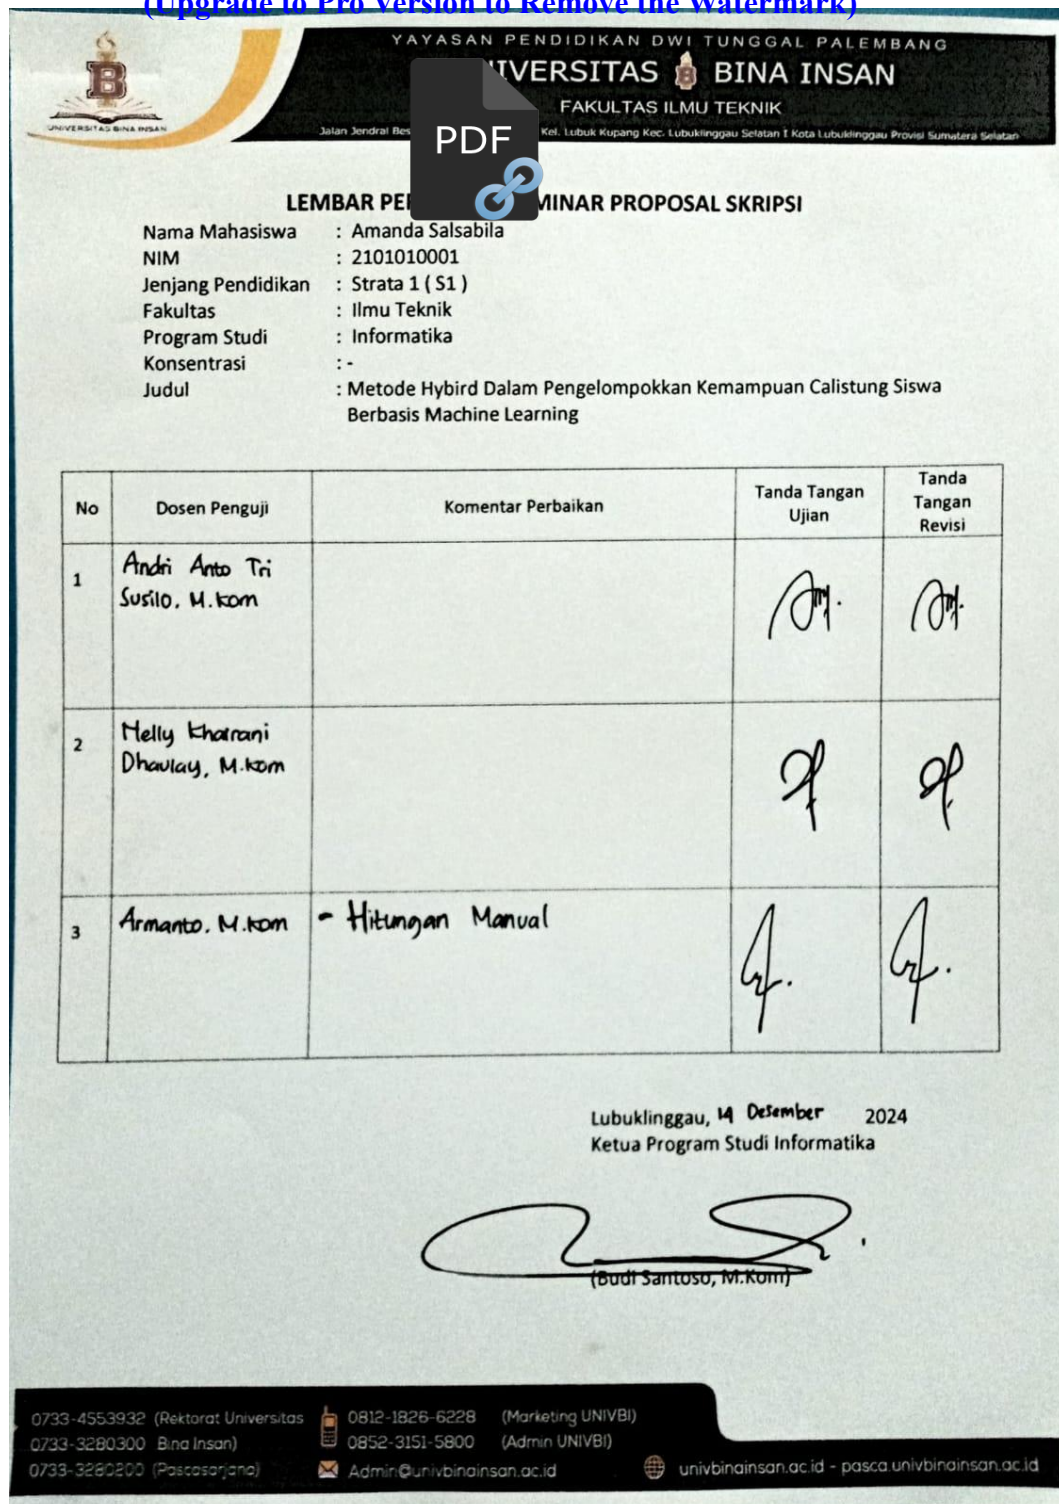 (Upgrade to Pro Version to Remove the Watermark)
YAYASAN PENDIDIKAN DWI TUNGGAL PALEMBANG
IVERSITAS BINA INSAN
FAKULTAS ILMU TEKNIK
UNIVERSITAS BINA INSAN
Jalan Jendral Bes Kel. Lubuk Kupang Kec. Lubuklinggau Selatan I Kota Lubuklinggau Provisi Sumatera Selatan
PDF
LEMBAR PE MINAR PROPOSAL SKRIPSI
Nama Mahasiswa : Amanda Salsabila
NIM : 2101010001
Jenjang Pendidikan : Strata 1 ( S1 )
Fakultas : Ilmu Teknik
Program Studi : Informatika
Konsentrasi : -
Judul : Metode Hybird Dalam Pengelompokkan Kemampuan Calistung Siswa
Berbasis Machine Learning
No Dosen Penguji Komentar Perbaikan Tanda Tangan Ujian Tanda Tangan Revisi
1 Andri Anto Tri
Susilo, M.kom
2 Nelly Khairani
Dhaulay, M.kom
3 Armanto, M.kom - Hitungan Manual
Lubuklinggau, 14 Desember 2024
Ketua Program Studi Informatika
(Budi Santoso, M.Kom)
0733-4553932 (Rektorat Universitas 0812-1826-6228 (Marketing UNIVBI)
0733-3280300 Bina Insan) 0852-3151-5800 (Admin UNIVBI)
0733-3280200 (Pascasarjana) Admin@univbinainsan.ac.id univbinainsan.ac.id - pasca.univbinainsan.ac.id